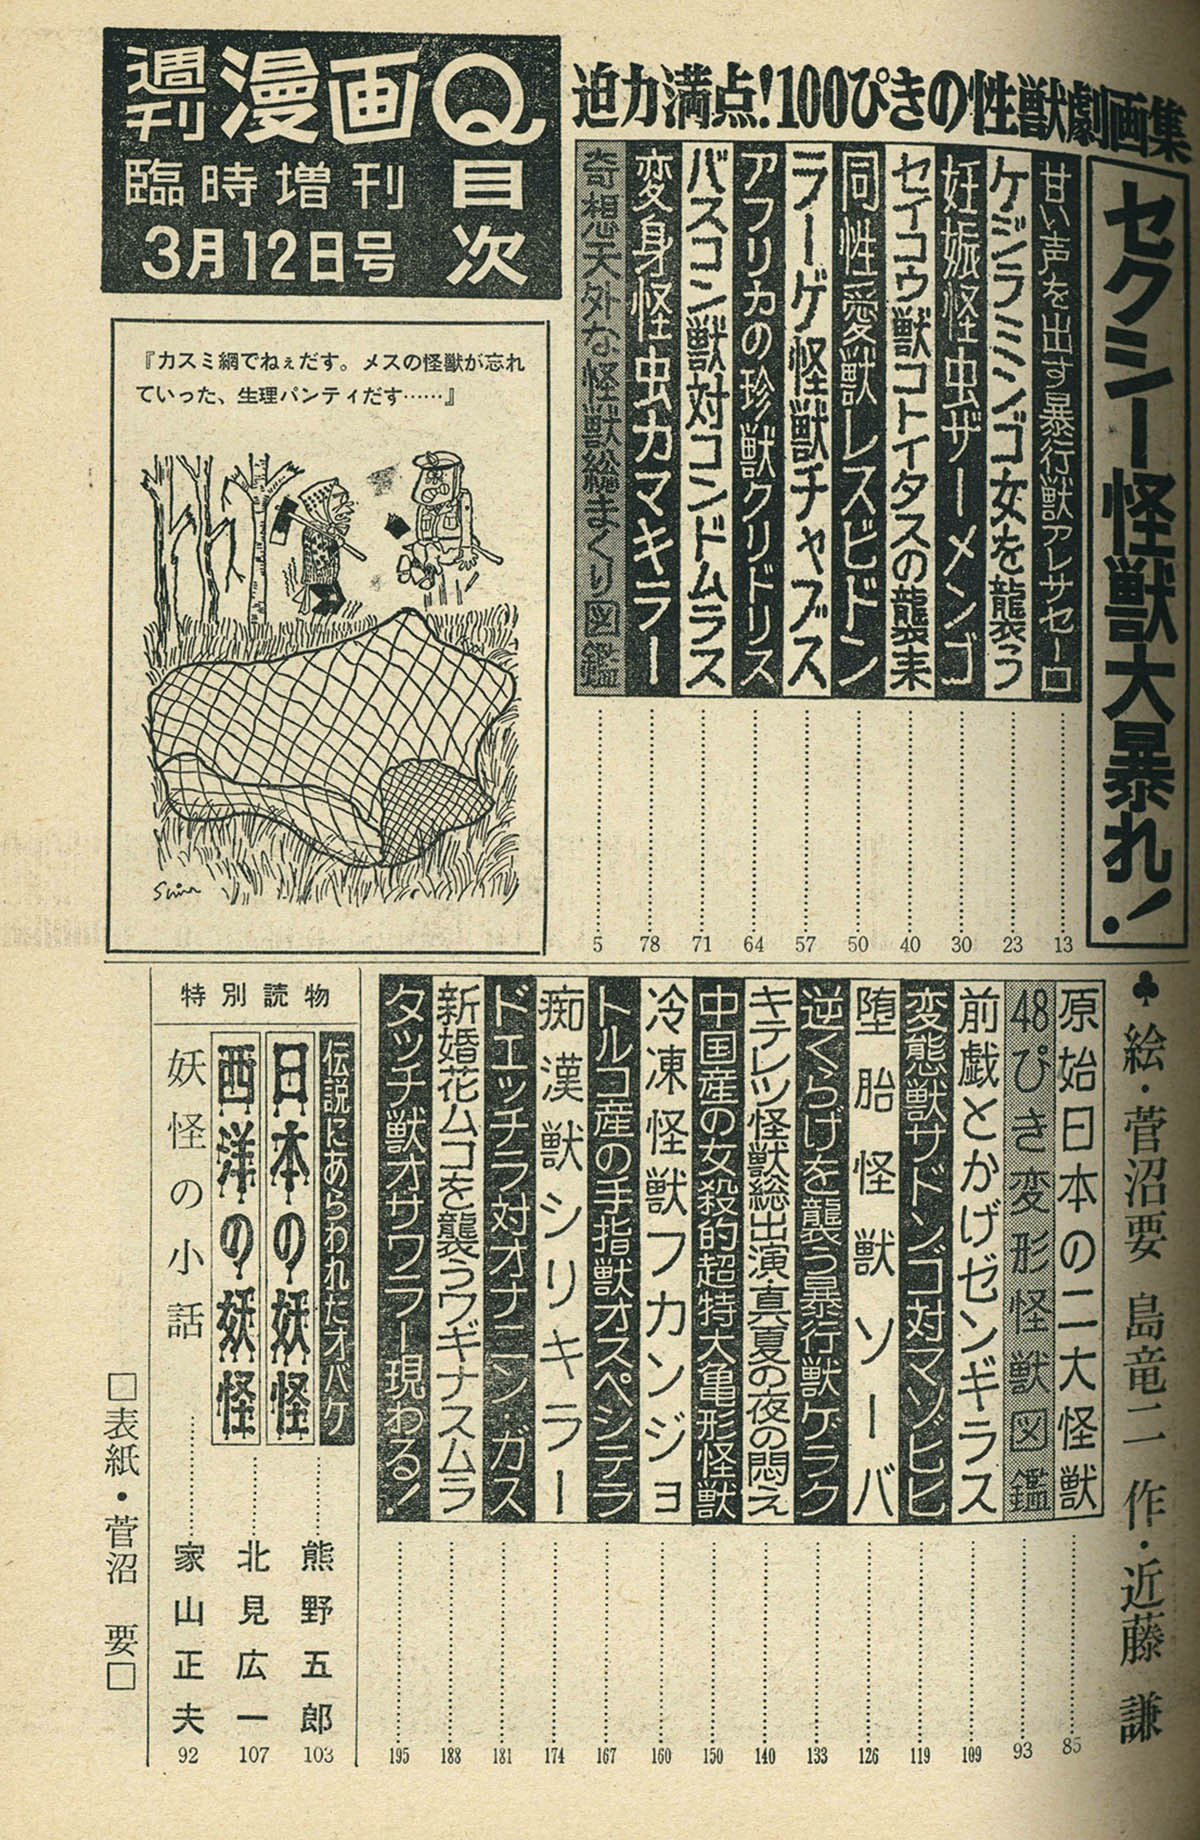 迫力満点!100ぴきの性獣劇画集
セクシー怪獣大暴れ!
甘い声を出す暴行獣アレサセーロ 13
ケジラミンゴ女を襲う 23
妊娠怪虫ザーメンゴ 30
セイコウ獣コトイタスの襲来 40
同性愛獣レスビドン 50
ラーゲ怪獣チャブス 57
アフリカの珍獣クリドリス 64
バスコン獣対コンドムラス 71
変身怪虫カマキラー 78
奇想天外な怪獣総まくり図鑑 5
週刊漫画Q目次
臨時増刊
3月12日号
『カスミ網でねぇだす。メスの怪獣が忘れ
ていった、生理パンティだす……』
♣絵・菅沼要 島竜二 作・近藤 謙
原始日本の二大怪獣 85
48ぴき変形怪獣図鑑 93
前戯とかげゼンギラス 109
変態獣サドンゴ対マゾヒヒ 119
堕胎怪獣ソーバ 126
逆くらげを襲う暴行獣ゲラク 133
キテレツ怪獣総出演・真夏の夜の悶え 140
中国産の女殺的超特大亀形怪獣 150
冷凍怪獣フカンジョ 160
トルコ産の手指獣オスペシテラ 167
痴漢獣シリキラー 174
ドエッチラ対オナニン・ガス 181
新婚花ムコを襲うワギナスムラ 188
タッチ獣オサワラー現わる! 195
特別読物
伝説にあらわれたオバケ
日本の妖怪 熊野五郎 103
西洋の妖怪 北見広一 107
妖怪の小話 家山正夫 92
□表紙・菅沼 要□